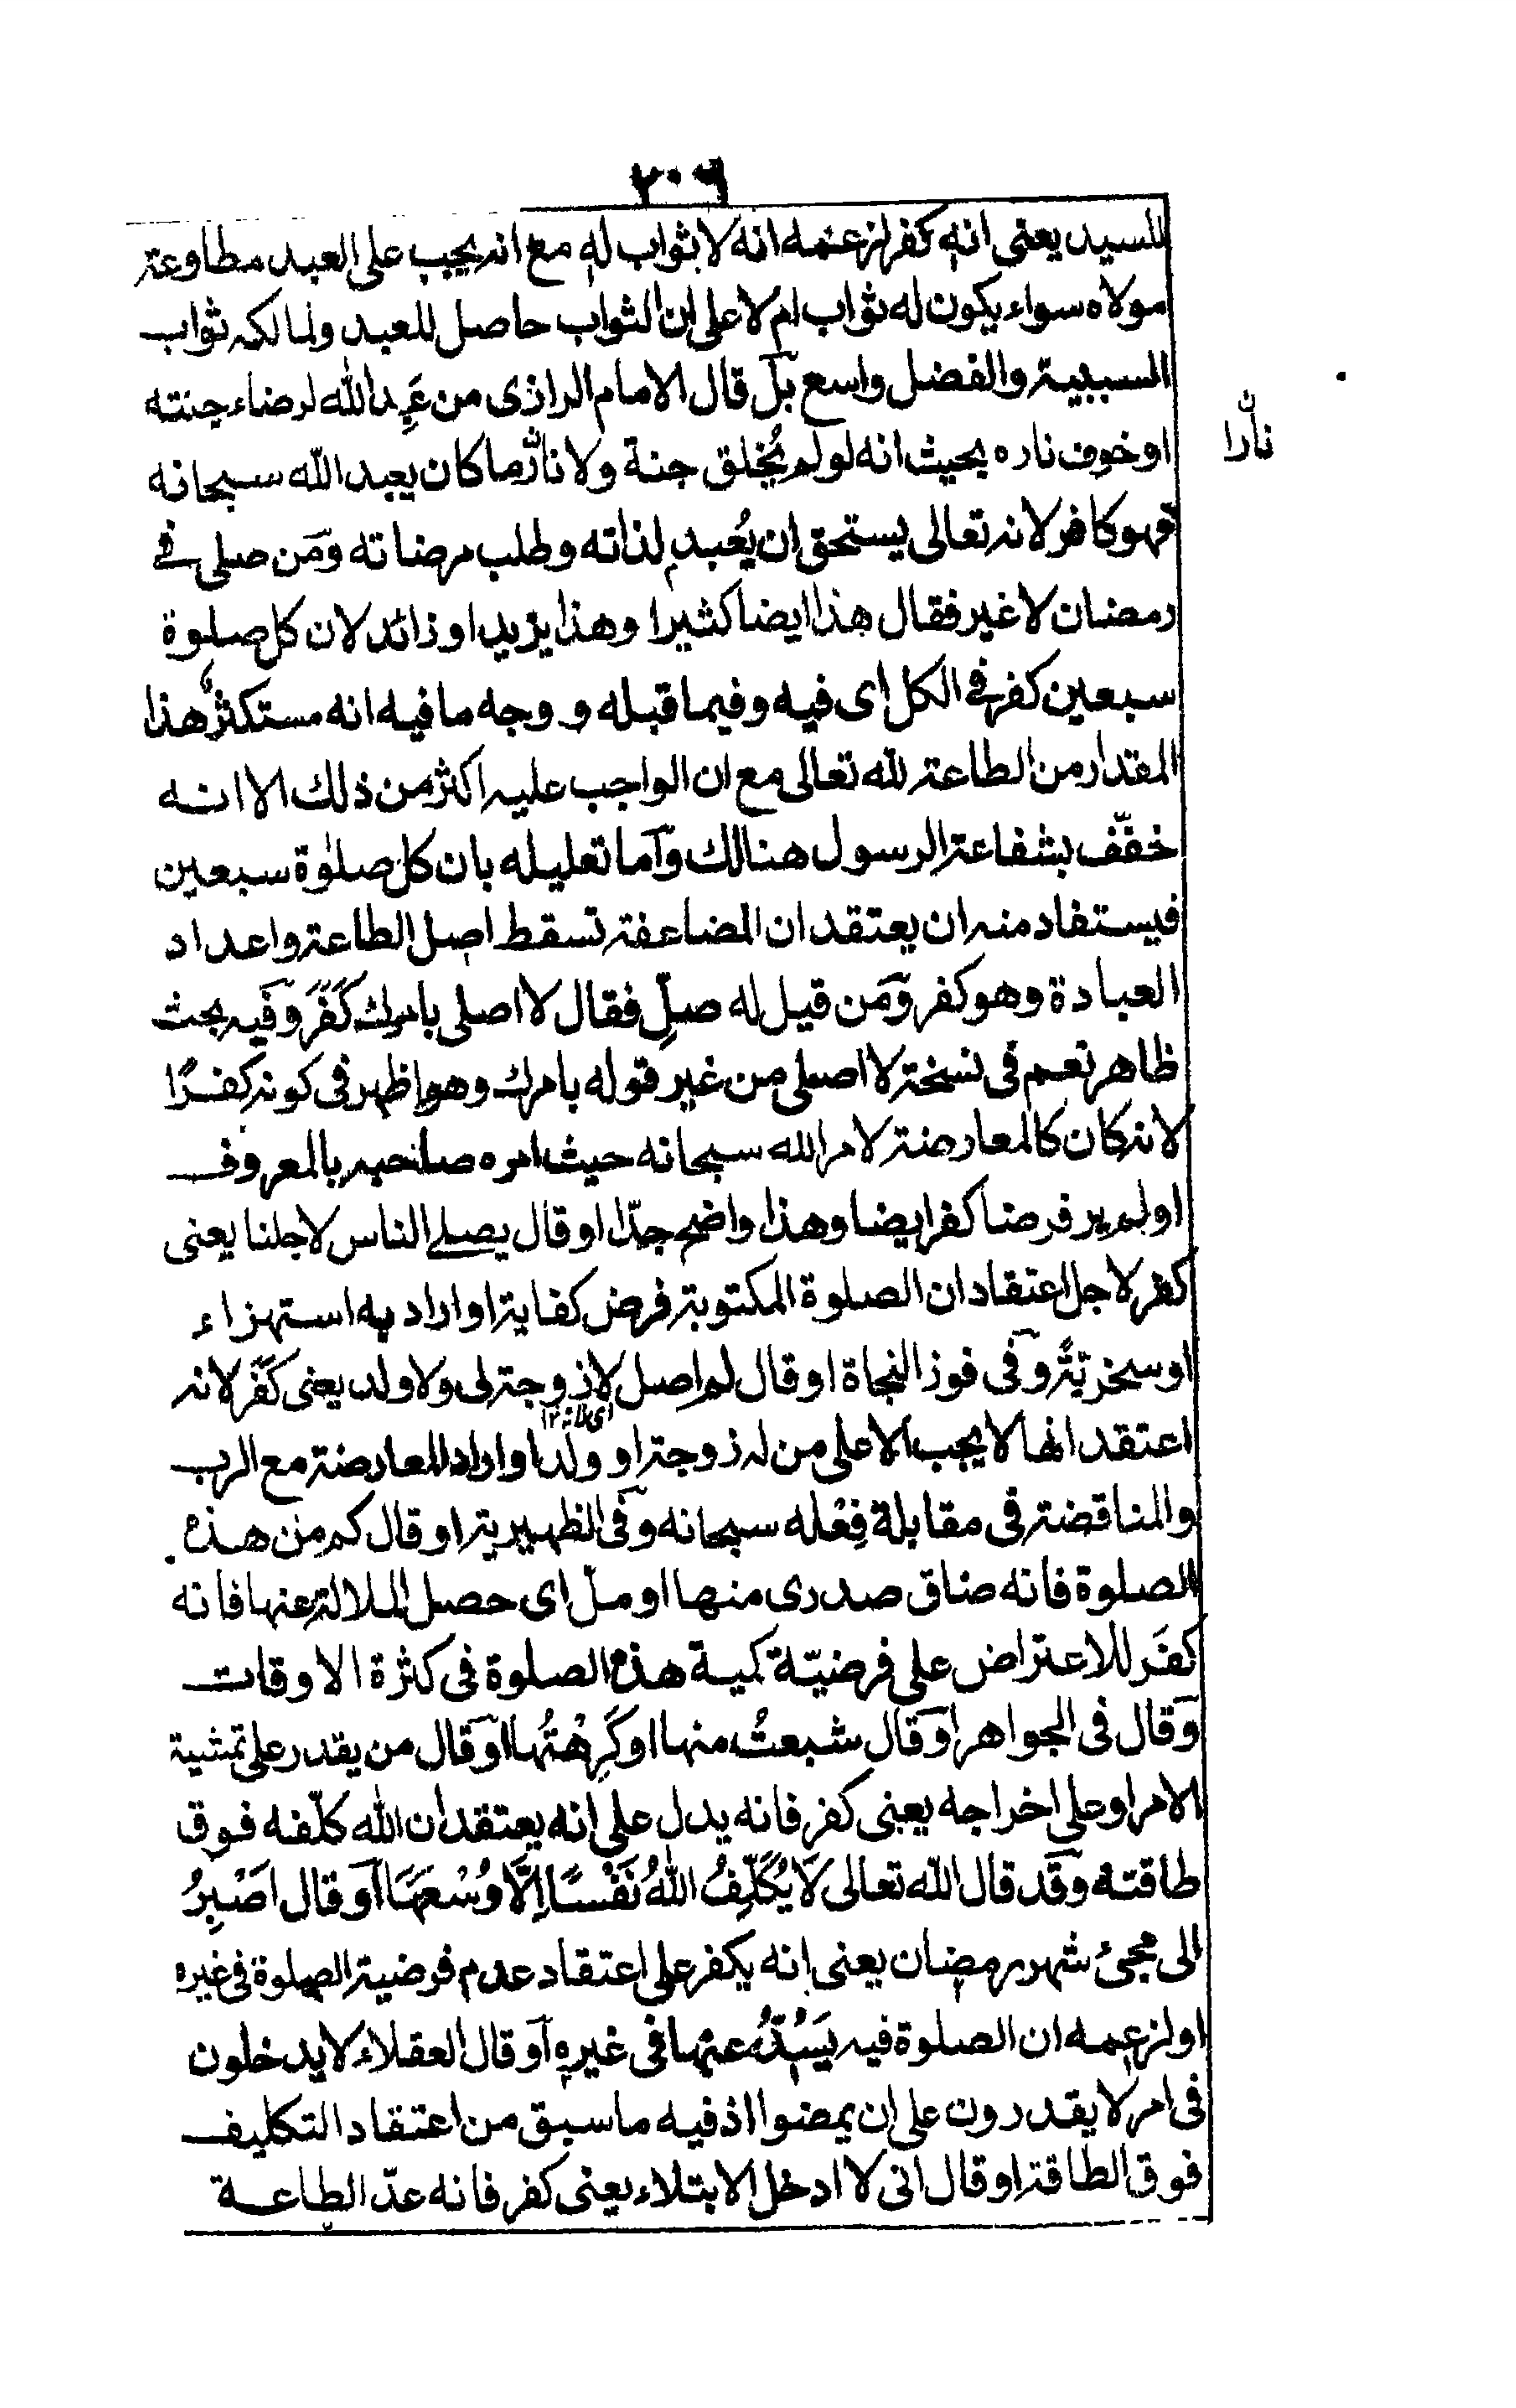 ٢٠٦
للسيد يعنى انه كفر لزعمه انه لا ثواب له مع انه يجب على العبد مطاوعة
مولاه سواء يكون له ثواب ام لا على ان الثواب حاصل للعبد ولمالكه ثواب
السببية والفضل واسع بل قال الامام الرازى من عَبِد الله لرضاء جنته
او خوف ناره بحيث انه لو لم يُخلق جنة ولا نار ما كان يعبد الله سبحانه
نارا ن
فهو كافر لانه تعالى يستحق ان يُعبد لذاته وطلب مرضاته ومَن صلى فى
رمضان لا غير فقال هذا ايضا كثيرا وهذا يزيد او زائد لان كل صلوة
سبعين كفر فى الكل اى فيه وفيما قبله و وجه ما فيه انه مستكثر هذا
المقدار من الطاعة لله تعالى مع ان الواجب عليه اكثر من ذلك الا انه
خفّف بشفاعة الرسول هنالك وآما تعليله بان كل صلوٰة سبعين
فيستفاد منه ان يعتقد ان المضاعفة تسقط اصل الطاعة واعداد
العبادة وهو كفر ومَن قيل له صلِّ فقال لا اصلى بامرك كَفَرَ وفيه بحث
ظاهر نعم فى نسخة لا اصلى من غير قوله بامرك وهو اظهر فى كونه كفرًا
لانه كان كالمعارضة لامر الله سبحانه حيث امره صاحبه بالمعروف
او لم ير فرضا كفر ايضا وهذا واضح جدّا او قال يصلى الناس لاجلنا يعنى
كفر لاجل اعتقاد ان الصلوة المكتوبة فرض كفاية او اراد به استهزاء
او سخريّةً وفى فوز النجاة او قال لم اصل لا زوجة لى ولا ولد يعنى كَفَر لانه
اعتقد انها لا يجب الا على من له زوجة او ولد او اراد المعارضة مع الرب
والمناقضة فى مقابلة فِعْله سبحانه وفى الظهيرية او قال كم من هذه
الصلوة فانه ضاق صدرى منها او ملّ اى حصل الملالة عنها فانه
كفَر للاعتراض على فرضيّة كمية هذه الصلوة فى كثرة الاوقات
وقال فى الجواهر او قال شبعتُ منها او كَرِهْتُها او قال من يقدر على تمشية
الامر او على اخراجه يعنى كفر فانه يدل على انه يعتقد ان الله كلّفه فوق
طاقته وقد قال الله تعالى لَا يُكَلِّفُ اللّٰهُ نَفْسًا اِلَّا وُسْعَهَا آو قال اصْبِرُ
الى مجئ شهر رمضان يعنى انه يكفر على اعتقاد عدم فرضية الصلوة فى غيره
او لزعمه ان الصلوة فيه يَسُدُّ عنها فى غيره آو قال العقلاء لا يدخلون
فى امر لا يقدرون على ان يمضوا اذ فيه ما سبق من اعتقاد التكليف
فوق الطاقة او قال انى لا ادخل الابتلاء يعنى كفر فانه عدّ الطاعة